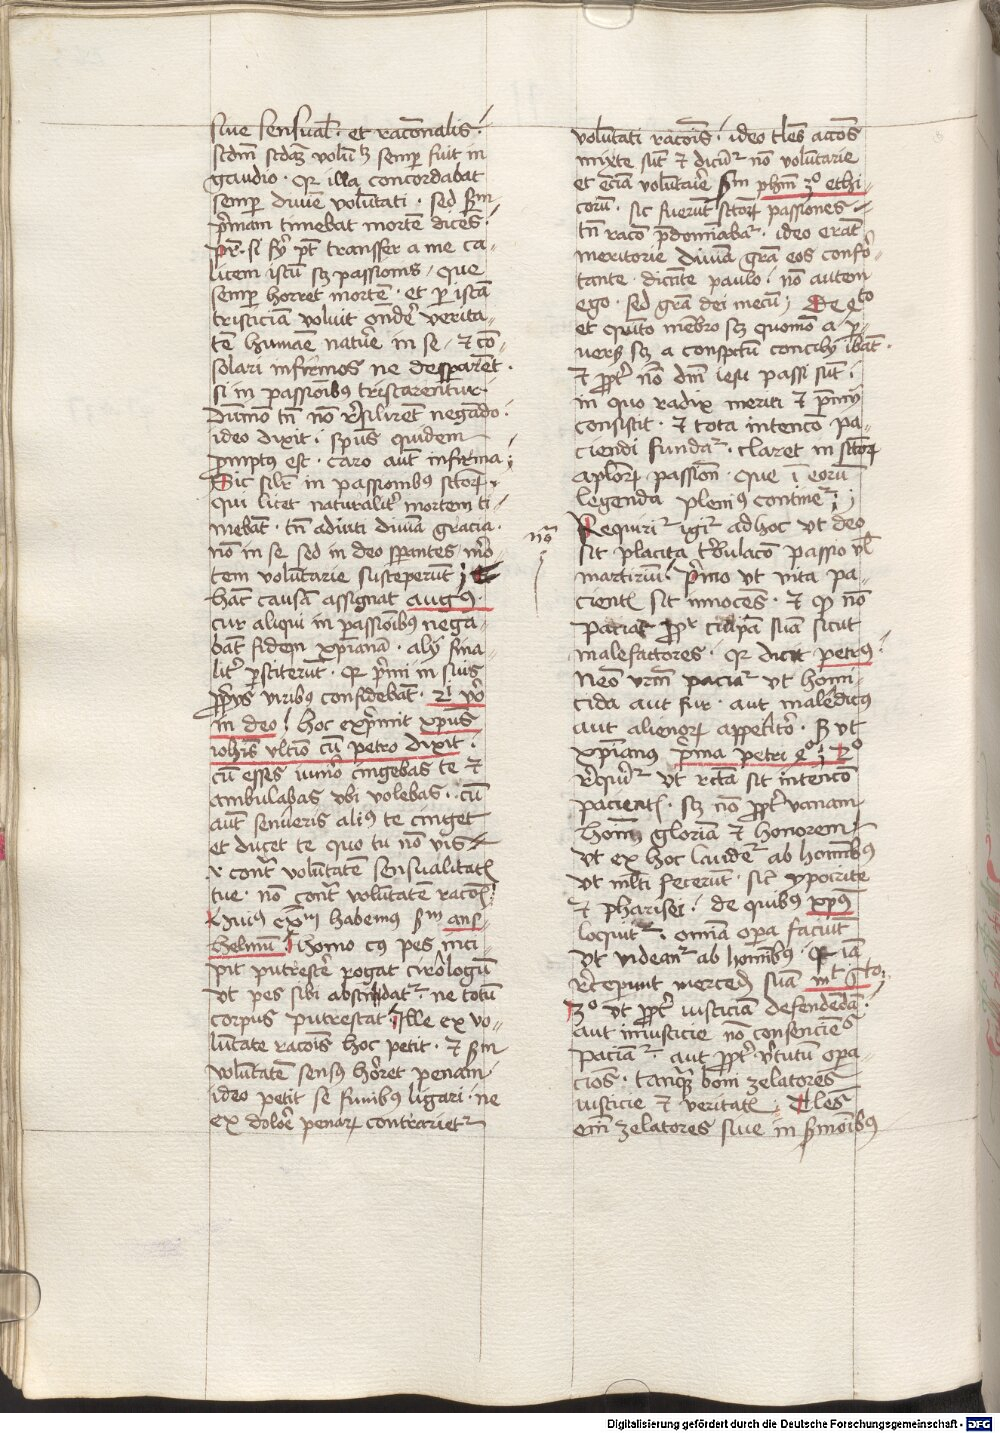 siue sensual̄ · et rac̄onalis ·
scdm̄ scdaȝ volūtȝ semp fuit in
gaudio · qr illa concordabat
semp diuīe voluntati · sed scdm
p̄mam timebat mortē dicēs ·
pr̄ · si fi͛ pt̄ transfer a me ca-
licem istū sȝ passionis / que
semp horret mortē · et p istā
tristiciā voluit ondē͛ verita-
tē humane natur̄e in se / ⁊ cō-
solari infirmos ne desparēt ·
si in passionibꝰ tristarentur ·
Dūmō tn̄ nō r͛silirēt negādo ·
ideo dixit · spūs quidem
promptꝰ est · caro aut̄ infirma ;
Sic silr̄ in passionibꝰ sctoꝝ ·
qui licet naturalit͛ mortem ti-
mebāt · tn̄ adiuti diuīa gracia ·
nō in se sed in deo sperantes / mor-
tem voluntarie susceperūt ;
hāc causā assignat augꝰ ·
cur aliqui in passionibꝰ nega-
bāt fidem xp̄ianā · alij fina-
lit͛ pstiterūt · qr p̄mi in suis
pprijs viribꝰ confidebāt · 2i vo͛
in deo ! hoc exp̄mit xp̄us
ioh̄is vltīo cū petro dixit ·
cū esses iunior cingebas te ⁊
ambulabas vbi volebas · cū
aūt senueris aliꝰ te cinget
et ducet te quo tu nō vis
· contͣ voluntatē sensualitatꝭ
tue · nō contͣ voluntatē rac̄oīs
huiꝰ exm̄ habemus scdm ans-
helmū · Homo cꝰ pes inci-
pit putrescē͛ rogat cirologū
vt pes sibi abscindatr · ne totū
corpus putrescat · Ille ex vo-
lūtate racōis hoc petit · ⁊ scdm
voluntatē sensꝰ hor͛et penam
ideo petit se funibꝰ ligari · ne
ex dolor͛e penaꝝ contrarietr
voluntati racōis · ideo tles accōs
mixte sūt ⁊ dicūtr nō voluntarie
et eciā voluntarie scdm phm̄ 3o ethi-
corū · sic fuerūt sctoꝝ passiones
tn̄ racō p̄dominabatr · ideo erāt
meritorie diuīa grā eos confor-
tante · dicēte paulo · nō autem
ego · sed grā dei mecū ; De 4to
et quinto mēbro sȝ quomō a p-
uersꝭ sȝ a conspc̄tu concilij ibāt ·
⁊ ppt͛ nōn dn̄i iesu passi sūt ·
in quo radix meriti ⁊ p̄mij
consistit · ⁊ tota intencō pa-
ciendi fundatr · claret in sctoꝝ
aploꝝ passion̄ · que ī eorū
legenda pleniꝰ continetr ;
nō
Requiritr igitr ad hoc vt deo
sit placita t͛bulacō passio vl̄
martiriū · p̄mo vt vita pa-
cientꝭ sit innocēs · ⁊ qd nō
paciatr ppt͛ culpā suā sicut
malefactores · qr dicit petrꝰ ·
Nēo vrm̄ paciatr vt homi-
cida aut fur · aut maledicꝰ
aut alienoꝝ appetitor · sȝ vt
xp̄ianus p̄ma petri 4o ; 2o
r͛quiritr vt rc̄ta sit intencō
pacientꝭ · sȝ nō ppt͛ vanam
hominū gloriā ⁊ honorem
vt ex hoc laudetr ab hominibꝰ
vt ml̄ti fecerūt · sic ypocrite
⁊ pharisei · de quibꝰ xp̄ꝰ
loquitr · omnia opa faciūt
vt videantr ab hominibꝰ · qr iā
r͛ceperunt mercedē suā mt 6to
3o vt ppt͛ iusticiā defendendā ·
aut iniusticie nō consenciēs
paciatr · aut ppt͛ v͛tutū opa-
cioēs · tanqȝ boni zelatores
iusticie ⁊ veritatꝭ ; Tles
em̄ zelatores siue in s͛monibꝰ
Digitalisierung gefördert durch die Deutsche Forschungsgemeinschaft - DFG